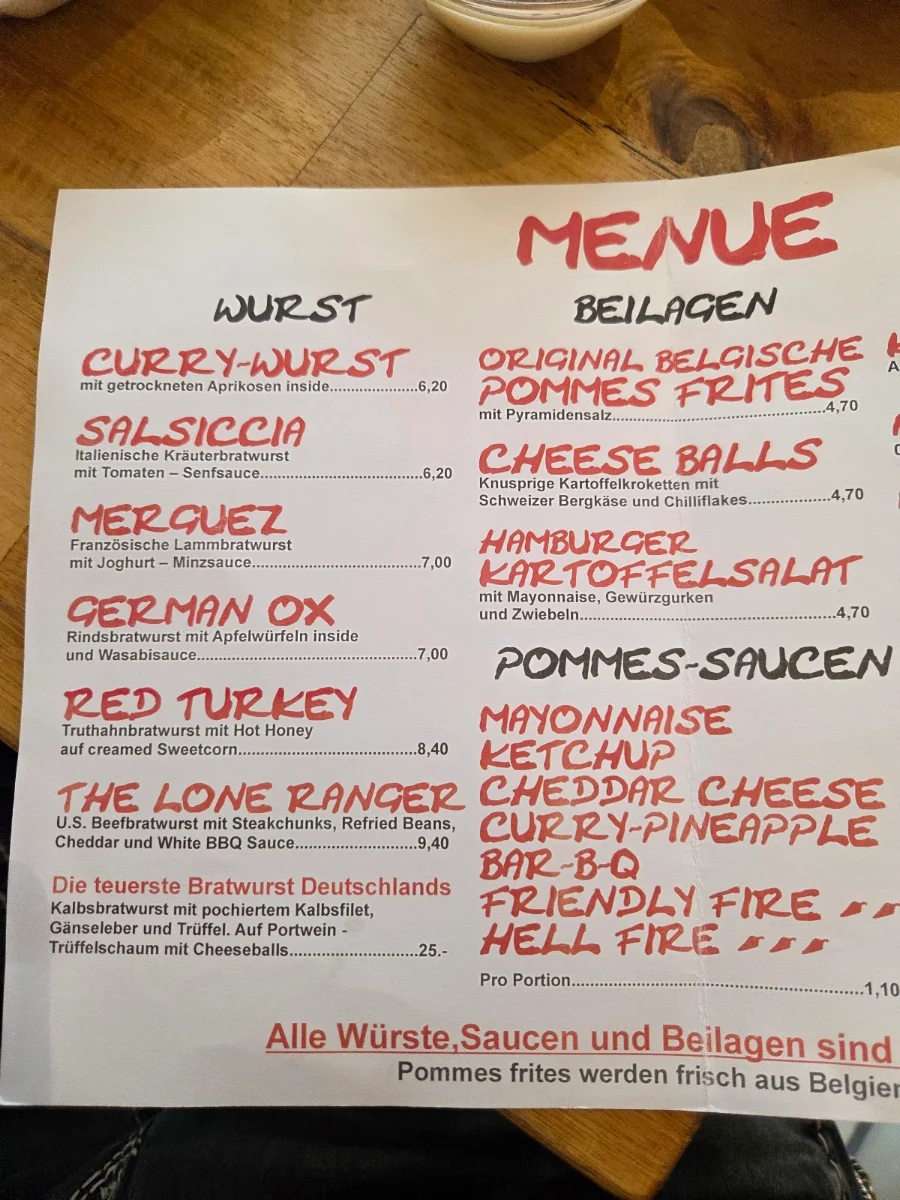 MENUE
WURST
CURRY-WURST
mit getrockneten Aprikosen inside.....................6,20
SALSICCIA
Italienische Kräuterbratwurst
mit Tomaten – Senfsauce.......................................6,20
MERGUEZ
Französische Lammbratwurst
mit Joghurt – Minzsauce.........................................7,00
GERMAN OX
Rindsbratwurst mit Apfelwürfeln inside
und Wasabisauce.....................................................7,00
RED TURKEY
Truthahnbratwurst mit Hot Honey
auf creamed Sweetcorn...........................................8,40
THE LONE RANGER
U.S. Beefbratwurst mit Steakchunks, Refried Beans,
Cheddar und White BBQ Sauce..............................9,40
Die teuerste Bratwurst Deutschlands
Kalbsbratwurst mit pochiertem Kalbsfilet,
Gänseleber und Trüffel. Auf Portwein -
Trüffelschaum mit Cheeseballs...............................25.-
BEILAGEN
ORIGINAL BELGISCHE
POMMES FRITES
mit Pyramidensalz....................................................4,70
CHEESE BALLS
Knusprige Kartoffelkroketten mit
Schweizer Bergkäse und Chilliflakes....................4,70
HAMBURGER
KARTOFFELSALAT
mit Mayonnaise, Gewürzgurken
und Zwiebeln..............................................................4,70
POMMES-SAUCEN
MAYONNAISE
KETCHUP
CHEDDAR CHEESE
CURRY-PINEAPPLE
BAR-B-Q
FRIENDLY FIRE
HELL FIRE
Pro Portion....................................................................1,10
Alle Würste,Saucen und Beilagen sind
Pommes frites werden frisch aus Belgien